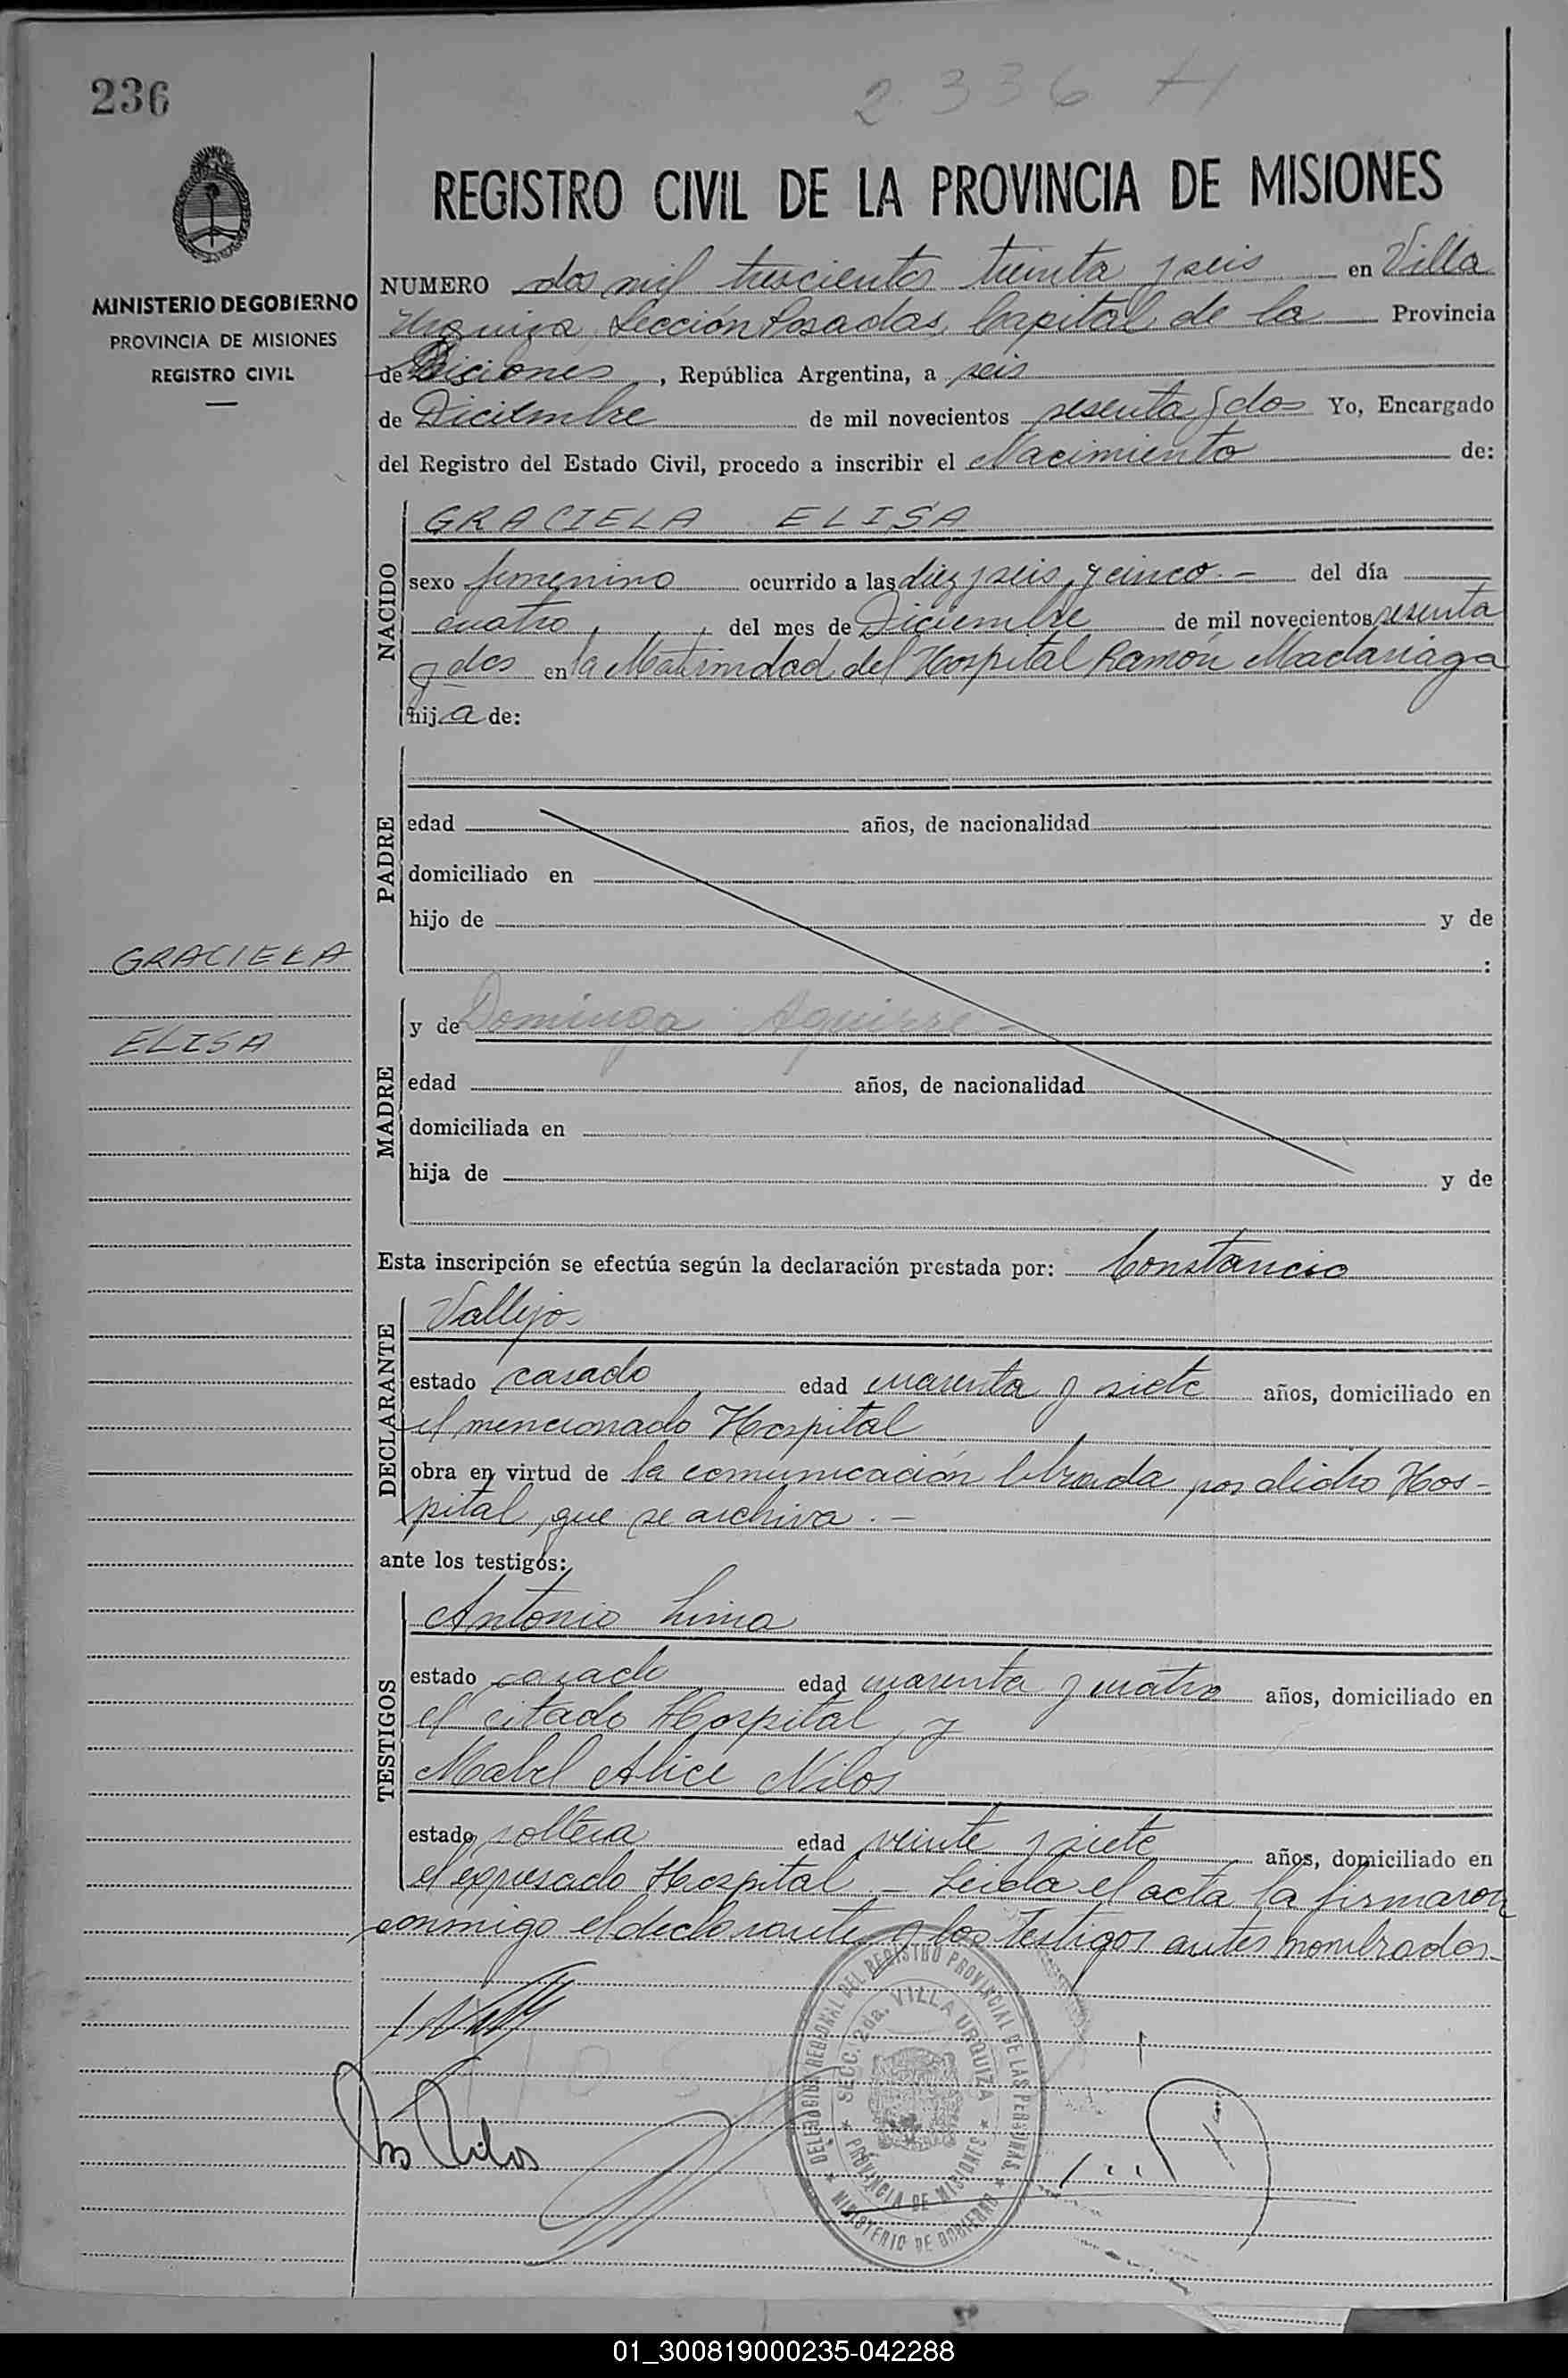 236
2336 H
REGISTRO CIVIL DE LA PROVINCIA DE MISIONES
MINISTERIO DE GOBIERNO
PROVINCIA DE MISIONES
REGISTRO CIVIL
NUMERO dos mil trescientos treinta y seis en Villa
Urquiza, Sección Posadas, Capital de la Provincia
de Misiones, República Argentina, a seis
de Diciembre de mil novecientos sesenta y dos Yo, Encargado
del Registro del Estado Civil, procedo a inscribir el Nacimiento de:
NACIDO
GRACIELA ELISA
sexo femenino ocurrido a las diez y seis y cinco.- del día
cuatro del mes de Diciembre de mil novecientos sesenta
y dos en la Maternidad del Hospital Ramón Madariaga
hija de:
PADRE
edad años, de nacionalidad
domiciliado en
hijo de y de
:
GRACIELA
ELISA
MADRE
y de Dominga Aguirre
edad años, de nacionalidad
domiciliada en
hija de y de
Esta inscripción se efectúa según la declaración prestada por: Constancio
DECLARANTE
Vallejo
estado casado edad cuarenta y siete años, domiciliado en
el mencionado Hospital
obra en virtud de la comunicación librada por dicho Hos-
pital, que se archiva.-
ante los testigos:
TESTIGOS
Antonio Lima
estado casado edad cuarenta y cuatro años, domiciliado en
el citado Hospital, y
Mabel Alice Nilos
estado soltera edad veinte y siete años, domiciliado en
el expresado Hospital.- Leida el acta la firmaron
conmigo el declarante y los testigos antes nombrados.-
DELEGACION REGIONAL DEL REGISTRO PROVINCIAL DE LAS PERSONAS
SECC. 2da. VILLA URQUIZA
PROVINCIA DE MISIONES
MINISTERIO DE GOBIERNO
M Nilos
01_300819000235-042288